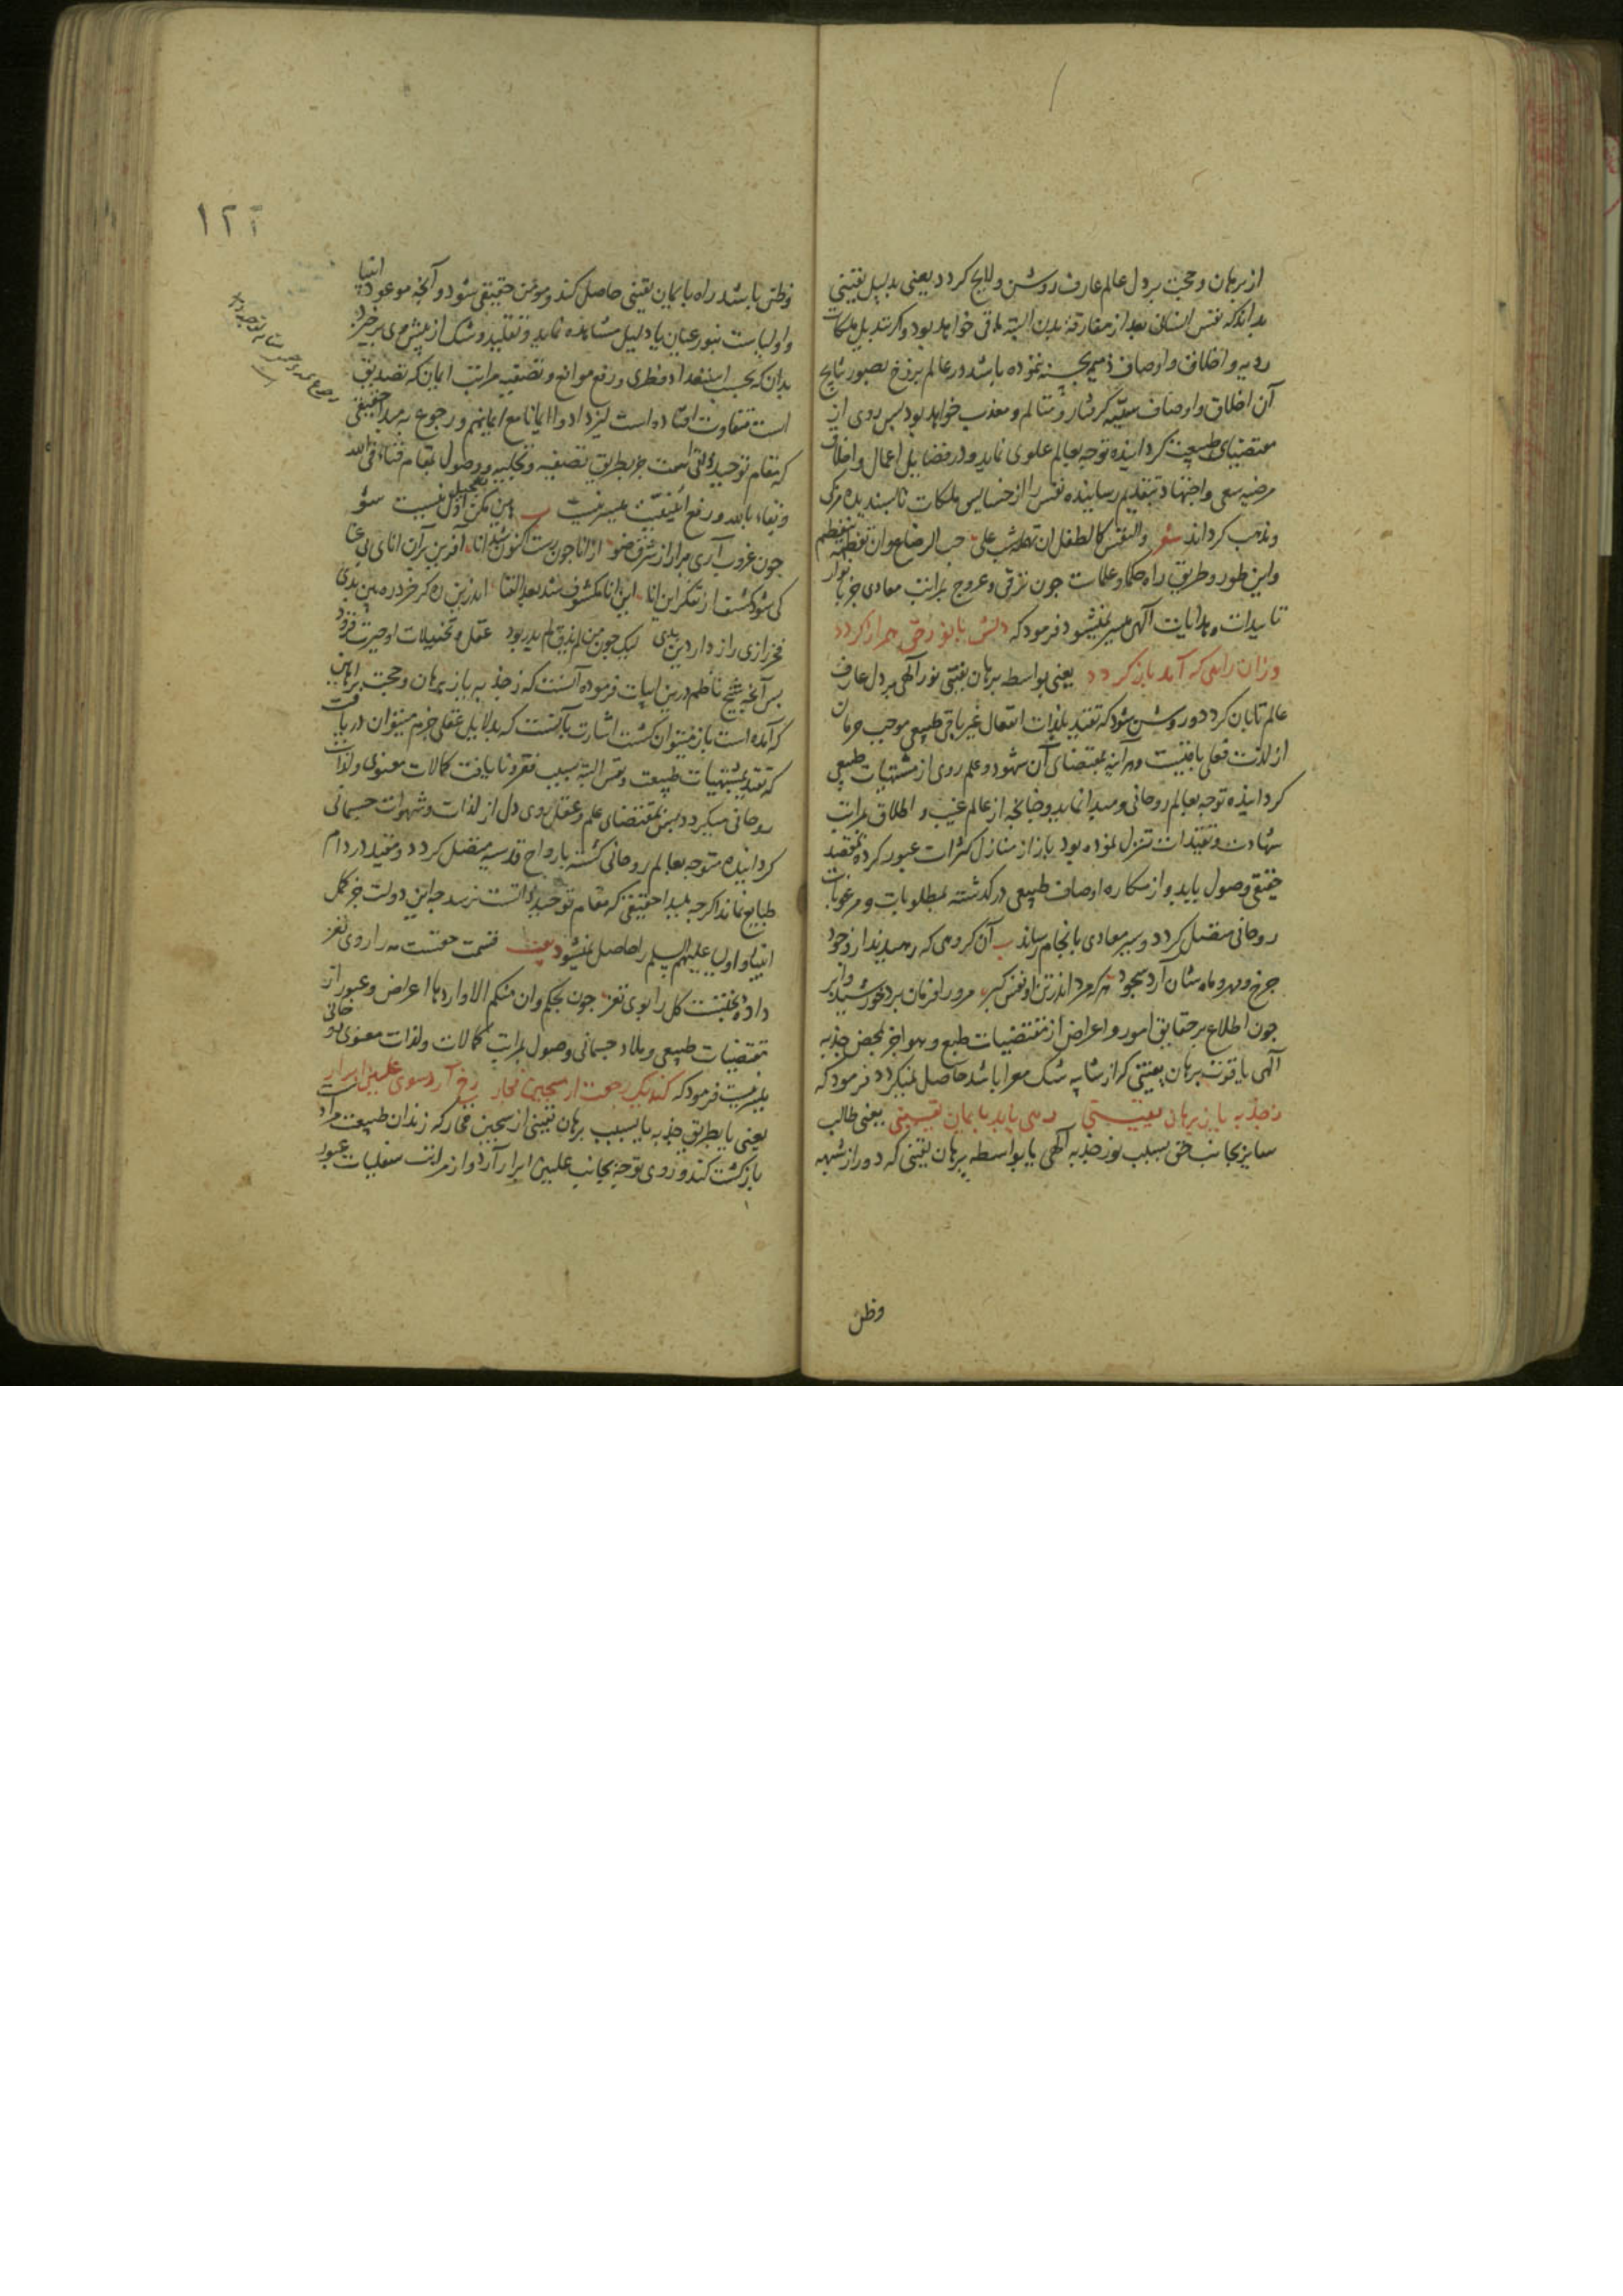 از برهان و حجت بر دل عالم عارف روشن و لایح کردد یعنی بدلیل یقینی
بداند که نفس انسان بعد از مفارقة بدن البته باقی خواهد بود و کر تبدیل ملکات
ردیه و اخلاق و اوصاف ذمیمه بحسنه نموده باشد در عالم برزخ بصور نتایج
آن اخلاق و اوصاف سیئه کرفتار و متالم و معذب خواهد بود پس روی از
مقتضیای طبیعت کردانیده توجه بعالم علوی نماید و در فضایل اعمال و اخلاق
مرضیه سعی و اجتهاد بتقدیم رسانیده نفس را از خسایس ملکات ناپسندیده مزکی
و مذهب کرداند شعر والنفس کالطفل ان تهمله شب علی حب الرضاع وان تفطمه ینفطم
واین طور و طریق راه حکما و علماست جون ترقی و عروج بمراتب معادی جز بانوار
تاییدات و هدایات آلهی میسر نمیشود فرمود که دلش با نور حق همراز کردد
وزان راهی که آمد باز کردد یعنی بواسطه برهان یقینی نور آلهی بر دل عارف
عالم تابان کردد و روشن شود که تقید بلذات انفعال غیر باقی طبیعی موجب حرمان
از لذت فعلی باقیست و هر آینه بمقتضای آن شهود و علم روی از مشتهیات طبیعی
کردانیده توجه بعالم روحانی و مبدا نماید و جنانجه از عالم غیب و اطلاق بمراتب
شهادت و تقیدات تنزل نموده بود باز از منازل کثرات عبور کرده بمقصد
حقیقی وصول یابد و از مکاره اوصاف طبیعی در کذشته بمطلوبات و مرغوبات
روحانی متصل کردد و سیر معادی بانجام رساند ب آن کروهی که رهیدند از وجود
جرخ و مهر و ماه شان آرد سجود هر که مرد اندر تن او نفس کبر مر ورا فرمان برد خورشید و ابر
جون اطلاع بر حقایق امور و اعراض از مقتضیات طبع و هوا جز بمحض جذبه
آلهی یا قوت برهان یقینی که از شایبه شک معرا باشد حاصل نمیکردد فرمود که
ز جذبه یا ز برهان یقینی رهی یابد بایمان یقینی یعنی طالب
سایر بجانب حق بسبب نور جذبه آلهی یا بواسطه برهان یقینی که دور از شبهه
وظن
۱۲۲
وظن باشد راه بایمان یقینی حاصل کند و مومن حقیقی شود و آنجه موعود انبیا
و اولیاست بنور عیان یا دلیل مشاهده نماید و تقلید و شک از پیش وی برخیزد
بدان که بحسب استعداد فطری و رفع موانع و تصفیه مراتب ایمان که تصدیق
است متفاوت افتاده است لیزدادوا ایمانا مع ایمانهم و رجوع به مبدا حقیقی
که مقام توحید ذاتی است جز بطریق تصفیه و تجلیه و وصول بمقام فناء فی الله
و بقاء بالله و رفع اثنینیت میسر نیست
جون غروب آری مرا از شرق ضو از انا جون رست اکنون شد انا آفرین بر آن انای بی عنا
کی شود کشف از تفکر این انا این انا مکشوف شد بعد الفنا اندرین ره کر خرد ره بین بدی
فخر رازی راز دار دین بدی لیک جون من لم یذق لم یدر بود عقل و تخییلات او حیرت فزود
پس آنجه شیخ ناظم درین ابیات فرموده آنست که ز جذبه یا ز برهان و حجت براهین
که آمده است باز میتوان کشت اشارت بآنست که بدلایل عقلی جزم میتوان دریافت
که تقید بمشتهیات طبیعت و نفس البته بسبب فقر و نایافت کمالات معنوی و لذات
روحانی میکردد پس بمقتضای علم و عقل روی دل از لذات و شهوات جسمانی
کردانیده متوجه بعالم روحانی کشته بارواح قدسیه متصل کردد و مقید در دام
طبایع نماند اکرجه بمبدا حقیقی که مقام توحید ذاتست نرسد جه این دولت جز کمل
انبیا و اولیا علیهم السلم را حاصل نمیشود بیت قسمت حقست مه را روی نغز
داده بختست کل را بوی نغز جون بحکم وان منکم الا واردها اعراض و عبور از
مقتضیات طبیعی و بلاد جسمانی وصول بمراتب کمالات و لذات معنوی
میسر نیست فرمود که کند یک رجعت از سجین فجار رخ آرد سوی علیین ابرار
یعنی یا بطریق جذبه یا بسبب برهان یقینی از سجین فجار که زندان طبیعت مراد است
بازکشت کند و روی توجه بجانب علیین ابرار آرد و از مراتب سفلیات عبور